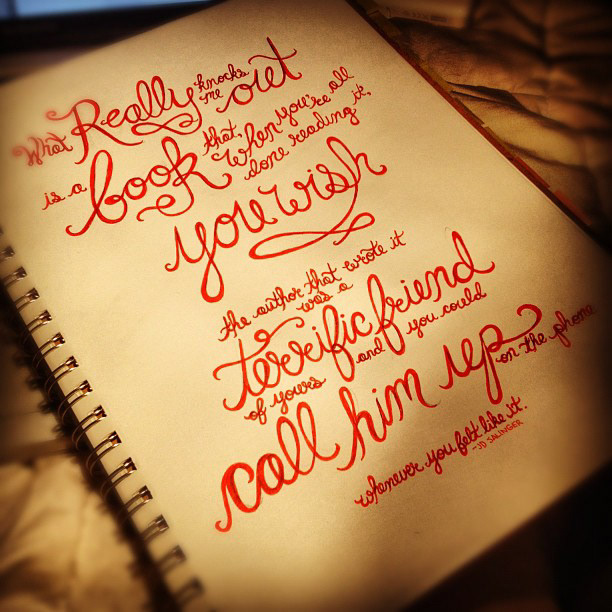 What Really knocks me out
is a book that, when you're all done reading it,
you wish
the author that wrote it
was a
terrific friend
of yours and you could
call him up on the phone
whenever you felt like it.
-JD SALINGER